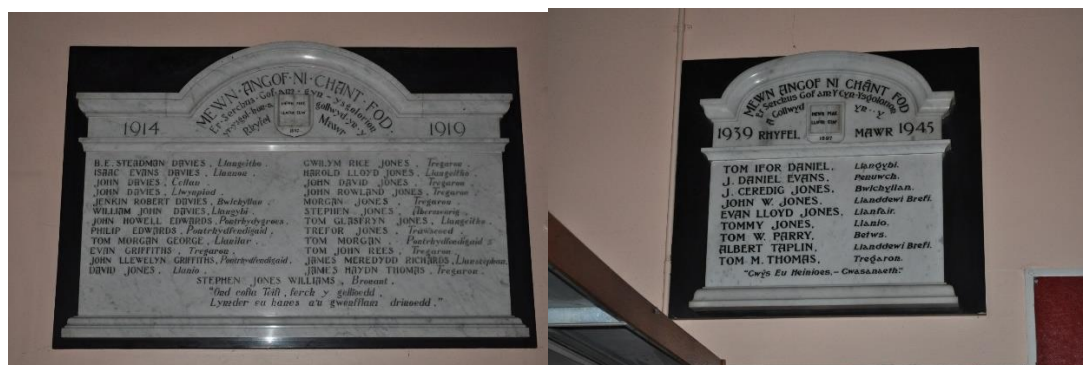 MEWN·ANGOF·NI·CHANT FOD
Er·Serchus Gof am y Cyn-Ysgolorion
Rhyfel Mawr
1914 1919
B.E. STEADMAN DAVIES, Llangeitho.
ISAAC EVANS DAVIES, Llannon.
JOHN DAVIES, Cellan.
JOHN DAVIES, Llwynpiod.
JENKIN ROBERT DAVIES, Bwlchyllan.
WILLIAM JOHN DAVIES, Llangybi.
JOHN HOWELL EDWARDS, Pontrhydygroes.
PHILIP EDWARDS, Pontrhydfendigaid.
TOM MORGAN GEORGE, Llanilar.
EVAN GRIFFITHS, Tregaron.
JOHN LLEWELYN GRIFFITHS, Pontrhydfendigaid.
DAVID JONES, Llanio.
GWILYM RICE JONES, Tregaron.
HAROLD LLOYD JONES, Tregaron.
JOHN DAVID JONES, Tregaron.
JOHN ROWLAND JONES, Tregaron.
MORGAN JONES, Tregaron.
STEPHEN JONES, Abermeurig.
TOM GLASFRYN JONES, Llangeitho.
TREFOR JONES, Trawscoed.
TOM MORGAN, Pontrhydfendigaid.
TOM JOHN REES, Tregaron.
JAMES MEREDYDD RICHARDS, Llanrhystud.
JAMES HAYDN THOMAS, Tregaron.
STEPHEN JONES WILLIAMS, Bronant.
"Ond cofia Teifi, ferch y gelltoedd
Lymder eu hanes a'u gwenfflam drinoedd."
MEWN ANGOF NI CHÂNT FOD
Er Serchus Gof am Y Cyn-Ysgolorion
a Gollwyd yn y
1939 RHYFEL MAWR 1945
TOM IFOR DANIEL, Llangybi.
J. DANIEL EVANS, Penuwch.
J. CEREDIG JONES, Bwlchyllan.
JOHN W. JONES, Llanddewi Brefi.
EVAN LLOYD JONES, Llanfair.
TOMMY JONES, Llanio.
TOM W. PARRY, Betws.
ALBERT TAPLIN, Llanddewi Brefi.
TOM M. THOMAS, Tregaron.
"Gwŷs Eu Heinioes,- Gwasanaeth."